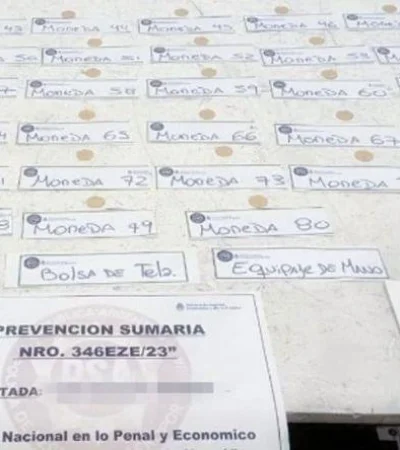 43 Moneda 44 Moneda 45 Moneda 46 Moneda
50 Moneda 51 Moneda 52 Moneda 53 M
7 Moneda 58 Moneda 59 Moneda 60 Moneda
Moneda 65 Moneda 66 Moneda 67
Moneda 72 Moneda 73 Moneda
8 Moneda 79 Moneda 80
Bolsa de Tela. Equipaje de Mano
PREVENCION SUMARIA
NRO. 346EZE/23”
TADA:
Nacional en lo Penal y Economico